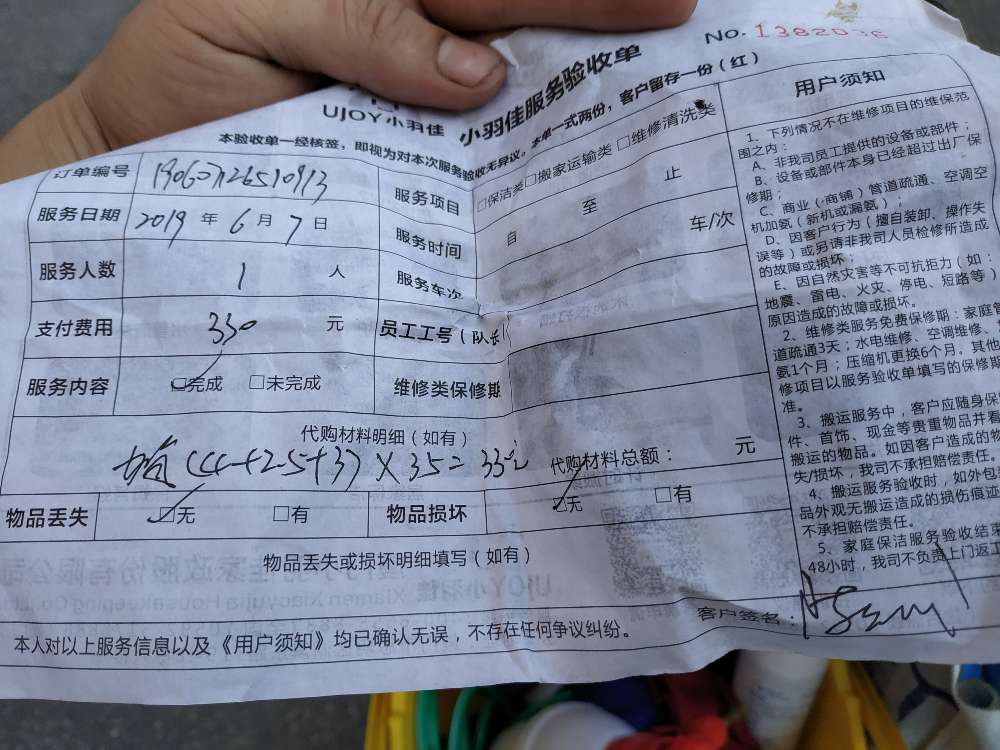 NO. 1382036
UJOY小羽佳 小羽佳服务验收单
本验收单一经核签，即视为对本次服务验收无异议。本单一式两份，客户留存一份（红）
订单编号
服务项目 □保洁类□搬家运输类□维修清洗类
服务日期 2019 年 6 月 7 日
服务时间 自 至 止
服务人数 1 人
服务车次 车/次
支付费用 330 元
员工工号（队长
服务内容 □完成 □未完成
维修类保修期
代购材料明细（如有）
(44+2.5+3) X 35=
代购材料总额： 元
物品丢失 □无 □有
物品损坏 □无 □有
物品丢失或损坏明细填写（如有）
客户签名：
本人对以上服务信息以及《用户须知》均已确认无误，不存在任何争议纠纷。
用户须知
1、下列情况不在维修项目的维保范
围之内：
A、非我司员工提供的设备或部件；
B、设备或部件本身已经超过出厂保
修期；
C、商业（商铺）管道疏通、空调空
机加氨（新机或漏氨）；
D、因客户行为（擅自装卸、操作失
误等）或另请非我司人员检修所造成
的故障或损坏；
E、因自然灾害等不可抗拒力（如：
地震、雷电、火灾、停电、短路等）
原因造成的故障或损坏。
2、维修类服务免费保修期：家庭管
道疏通3天；水电维修、空调维修、
氨1个月；压缩机更换6个月。其他
修项目以服务验收单填写的保修期
准。
3、搬运服务中，客户应随身保
件、首饰、现金等贵重物品并看
搬运的物品。如因客户造成的物
失/损坏，我司不承担赔偿责任。
4、搬运服务验收时，如外包
品外观无搬运造成的损伤痕迹
不承担赔偿责任。
5、家庭保洁服务验收结束
48小时，我司不负责上门返工